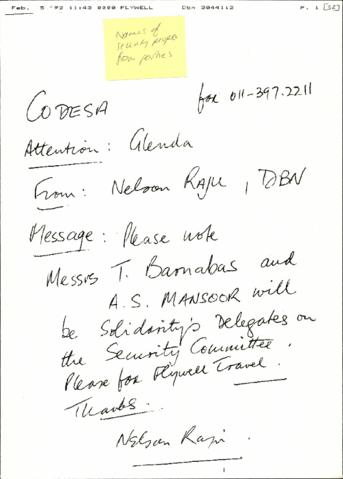 Feb. 5 '92 11:43 0000 FLYWELL Dbn 3044112 P. 1
Names of
security people
from parties
CODESA fax 011-397.2211
Attention: Glenda
From: Nelson RAJU, DBN
Message: Please note
Messrs T. Barnabas and
A.S. MANSOOR will
be Solidarity's Delegates on
the Security Committee.
Please fax Flywell Travel.
Thanks.
Nelson Raju.